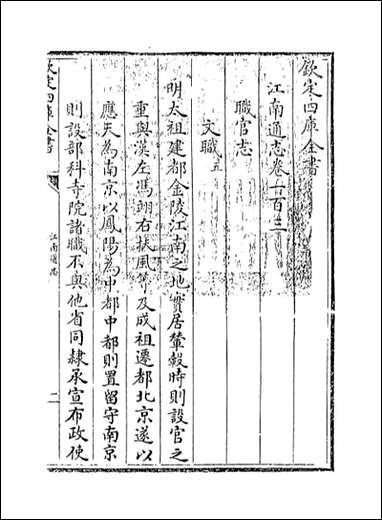 欽定四庫全書
江南通志卷一百三
職官志
文職五
明太祖建都金陵江南之地實居輦轂時則設官之
重與漢左馮翊右扶風等及成祖遷都北京遂以
應天為南京以鳳陽為中都中都則置留守南京
則設部科寺院諸職不與他省同隸承宣布政使
欽定四庫全書
江南通志